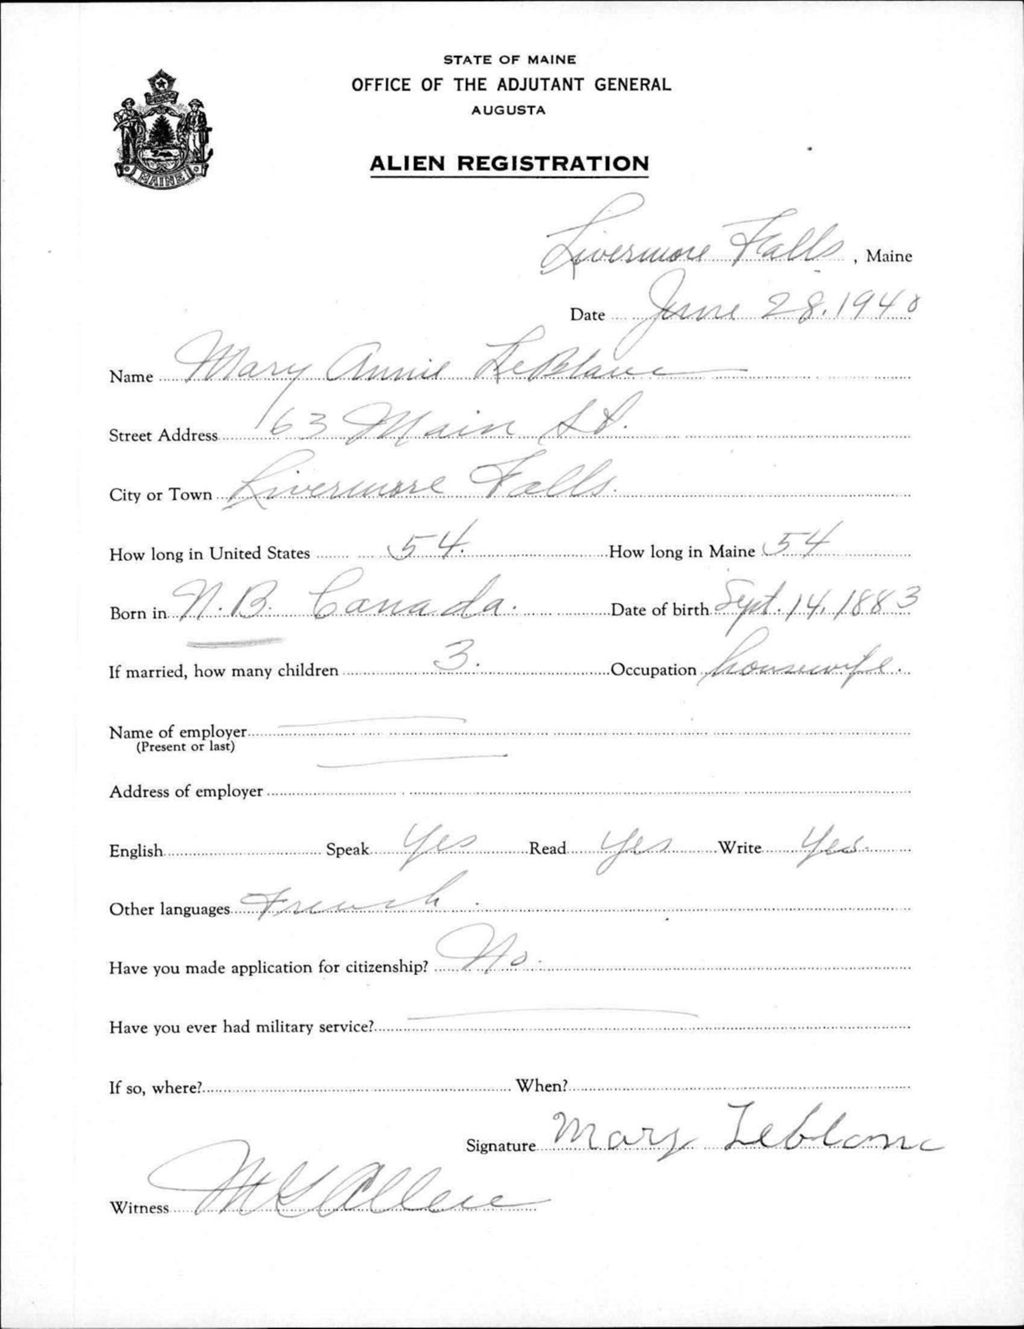 STATE OF MAINE
OFFICE OF THE ADJUTANT GENERAL
AUGUSTA
MAINE
ALIEN REGISTRATION
Livermore Falls, Maine
Date June 28. 1940
Name Mary Annie LeBlanc
Street Address 63 Main St.
City or Town Livermore Falls.
How long in United States 54. How long in Maine 54
Born in N.B. Canada. Date of birth Sept. 14. 1883
If married, how many children 3. Occupation housewife.
Name of employer
(Present or last)
Address of employer
English Speak Yes Read Yes Write Yes.
Other languages French.
Have you made application for citizenship? No.
Have you ever had military service?
If so, where? When?
Signature Mary Leblanc
Witness Allen